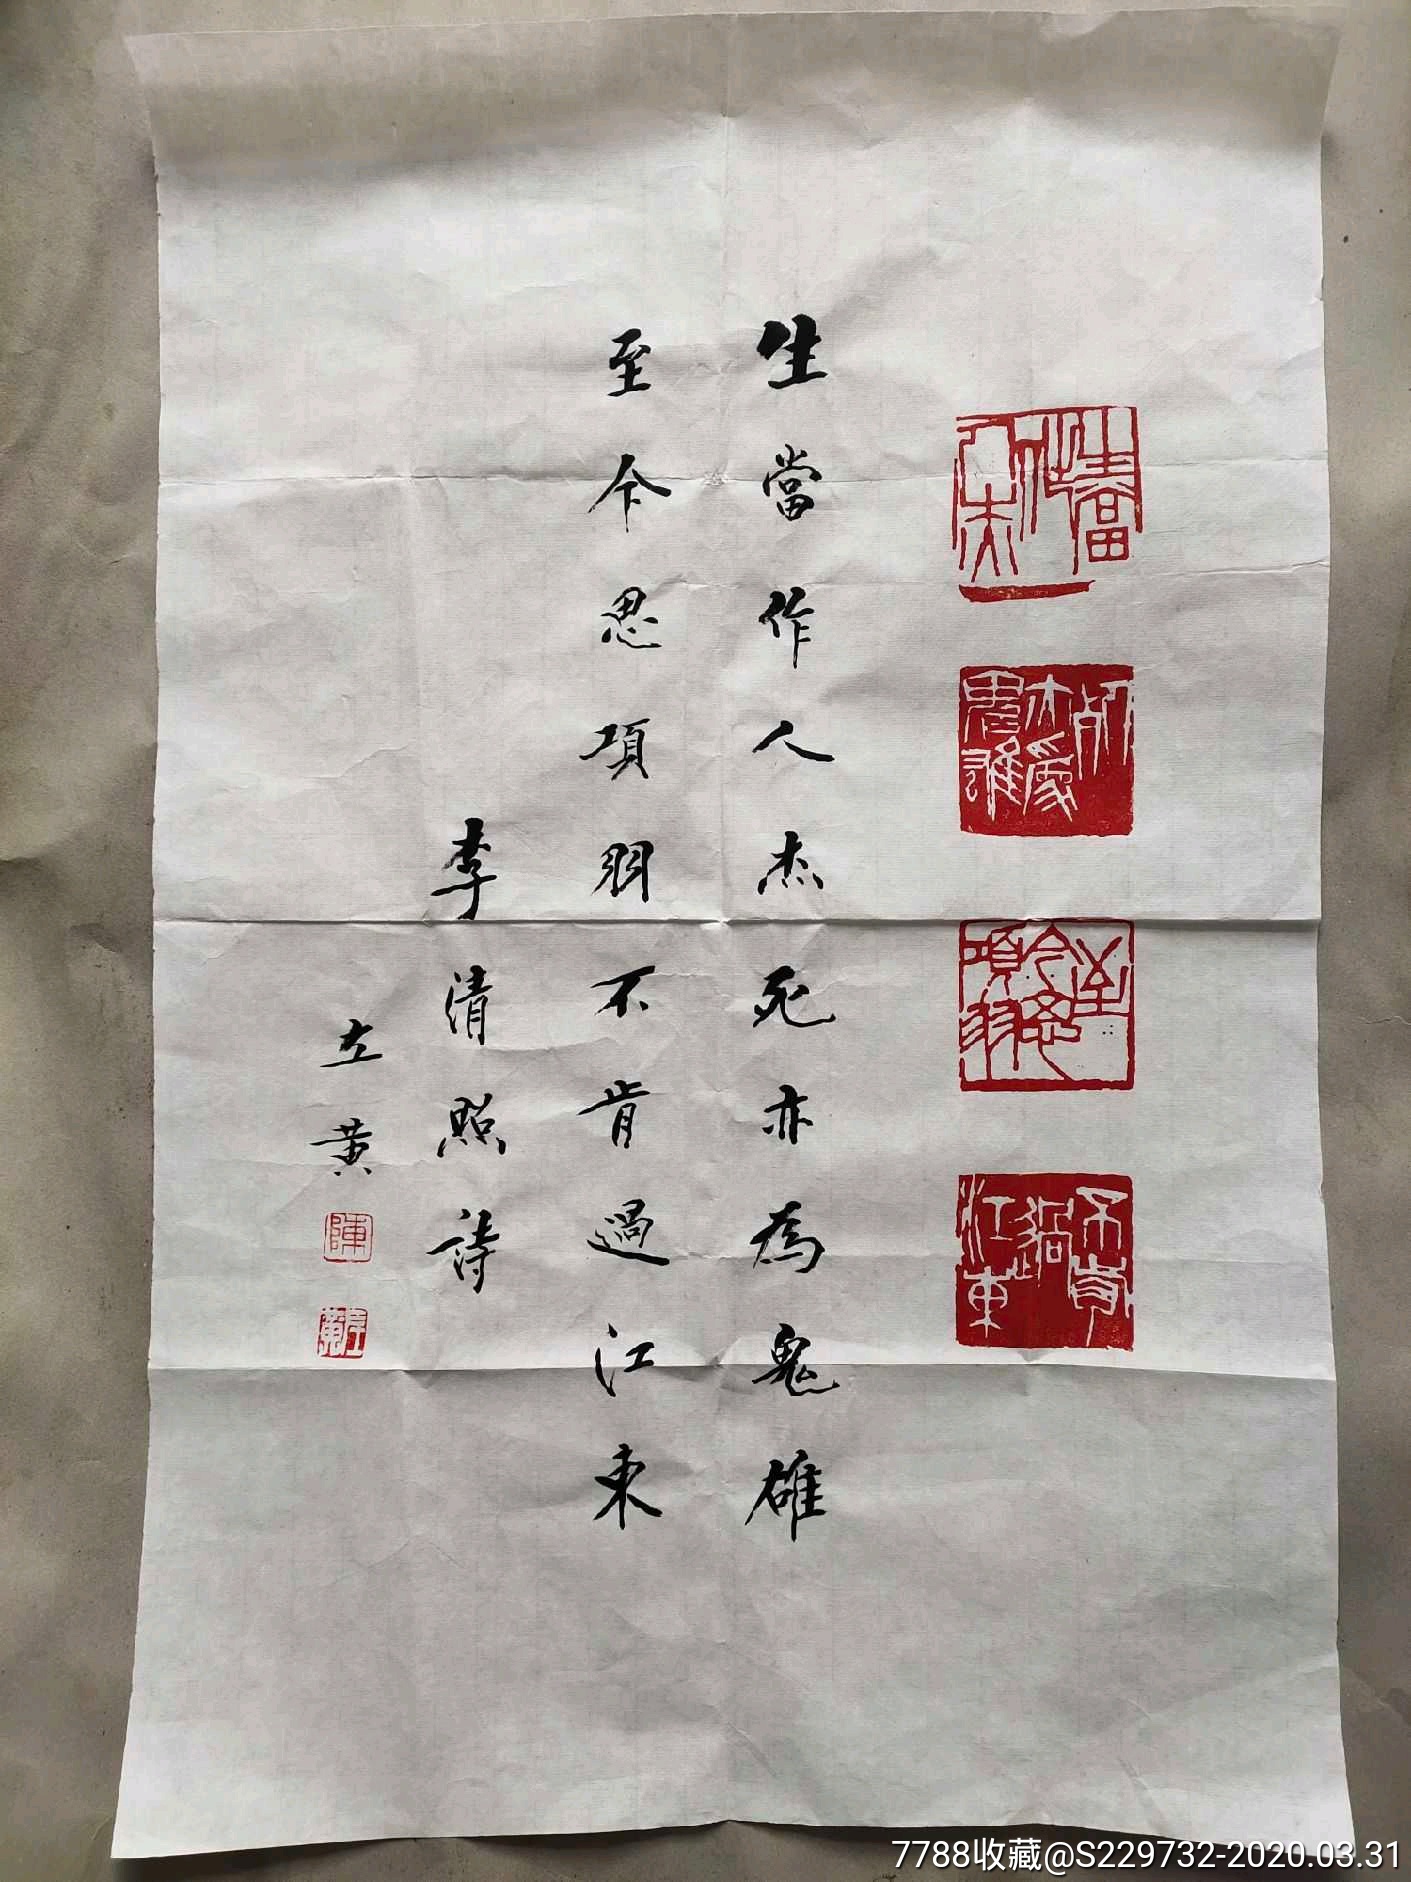 生當作人杰
死亦為鬼雄
至今思項羽
不肯過江東
生當作人杰死亦為鬼雄
至今思項羽不肯過江東
李清照詩
左黄
陳
左黄
7788收藏@S229732-2020.03.31